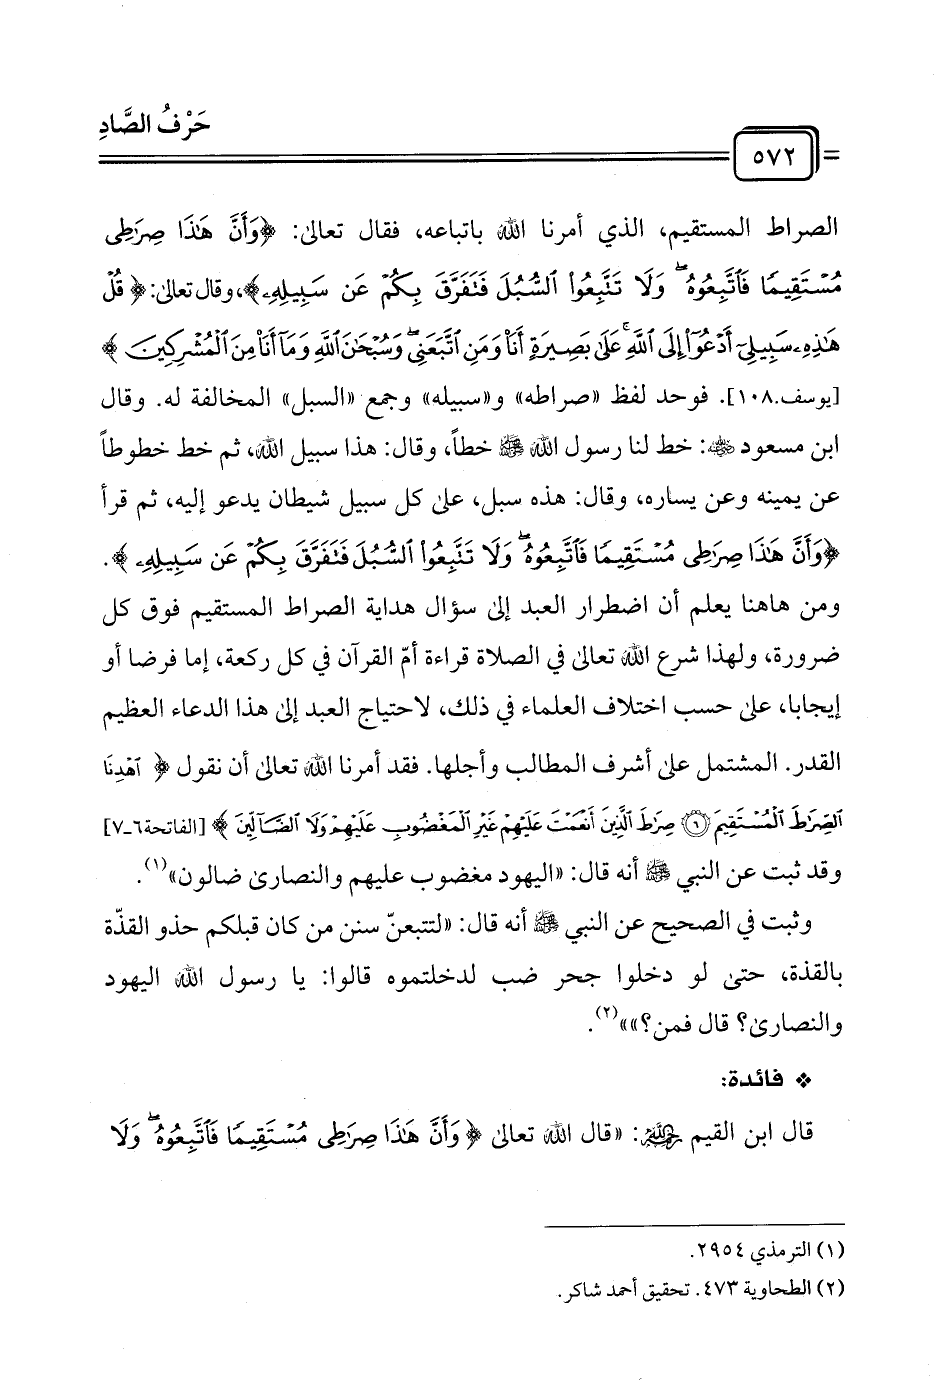 حَرْفُ الصَّادِ
٥٧٢
الصراط المستقيم، الذي أمرنا الله باتباعه، فقال تعالىٰ: ﴿وَأَنَّ هَٰذَا صِرَٰطِى
مُسۡتَقِيمٗا فَٱتَّبِعُوهُۖ وَلَا تَتَّبِعُواْ ٱلسُّبُلَ فَتَفَرَّقَ بِكُمۡ عَن سَبِيلِهِۦ﴾، وقال تعالىٰ: ﴿قُلۡ
هَٰذِهِۦ سَبِيلِيٓ أَدۡعُوٓاْ إِلَى ٱللَّهِۚ عَلَىٰ بَصِيرَةٍ أَنَا۠ وَمَنِ ٱتَّبَعَنِيۖ وَسُبۡحَٰنَ ٱللَّهِ وَمَآ أَنَا۠ مِنَ ٱلۡمُشۡرِكِينَ﴾
[يوسف.١٠٨]. فوحد لفظ «صراطه» و«سبيله» وجمع «السبل» المخالفة له. وقال
ابن مسعود ﵁: خط لنا رسول الله ﷺ خطاً، وقال: هذا سبيل الله، ثم خط خطوطاً
عن يمينه وعن يساره، وقال: هذه سبل، علىٰ كل سبيل شيطان يدعو إليه، ثم قرأ
﴿وَأَنَّ هَٰذَا صِرَٰطِى مُسۡتَقِيمٗا فَٱتَّبِعُوهُۖ وَلَا تَتَّبِعُواْ ٱلسُّبُلَ فَتَفَرَّقَ بِكُمۡ عَن سَبِيلِهِۦ﴾.
ومن هاهنا يعلم أن اضطرار العبد إلىٰ سؤال هداية الصراط المستقيم فوق كل
ضرورة، ولهذا شرع الله تعالىٰ في الصلاة قراءة أمّ القرآن في كل ركعة، إما فرضا أو
إيجابا، علىٰ حسب اختلاف العلماء في ذلك، لاحتياج العبد إلىٰ هذا الدعاء العظيم
القدر. المشتمل علىٰ أشرف المطالب وأجلها. فقد أمرنا الله تعالىٰ أن نقول ﴿ ٱهۡدِنَا
ٱلصِّرَٰطَ ٱلۡمُسۡتَقِيمَ ٦ صِرَٰطَ ٱلَّذِينَ أَنۡعَمۡتَ عَلَيۡهِمۡ غَيۡرِ ٱلۡمَغۡضُوبِ عَلَيۡهِمۡ وَلَا ٱلضَّآلِّينَ ﴾ [الفاتحة٦ـ٧]
وقد ثبت عن النبي ﷺ أنه قال: «اليهود مغضوب عليهم والنصارىٰ ضالون»(١).
وثبت في الصحيح عن النبي ﷺ أنه قال: «لتتبعنّ سنن من كان قبلكم حذو القذّة
بالقذة، حتىٰ لو دخلوا جحر ضب لدخلتموه قالوا: يا رسول الله اليهود
والنصارىٰ؟ قال فمن؟»»(٢).
❖ فائدة:
قال ابن القيم ﵀: «قال الله تعالىٰ ﴿وَأَنَّ هَٰذَا صِرَٰطِى مُسۡتَقِيمٗا فَٱتَّبِعُوهُۖ وَلَا
(١) الترمذي ٢٩٥٤.
(٢) الطحاوية ٤٧٣. تحقيق أحمد شاكر.